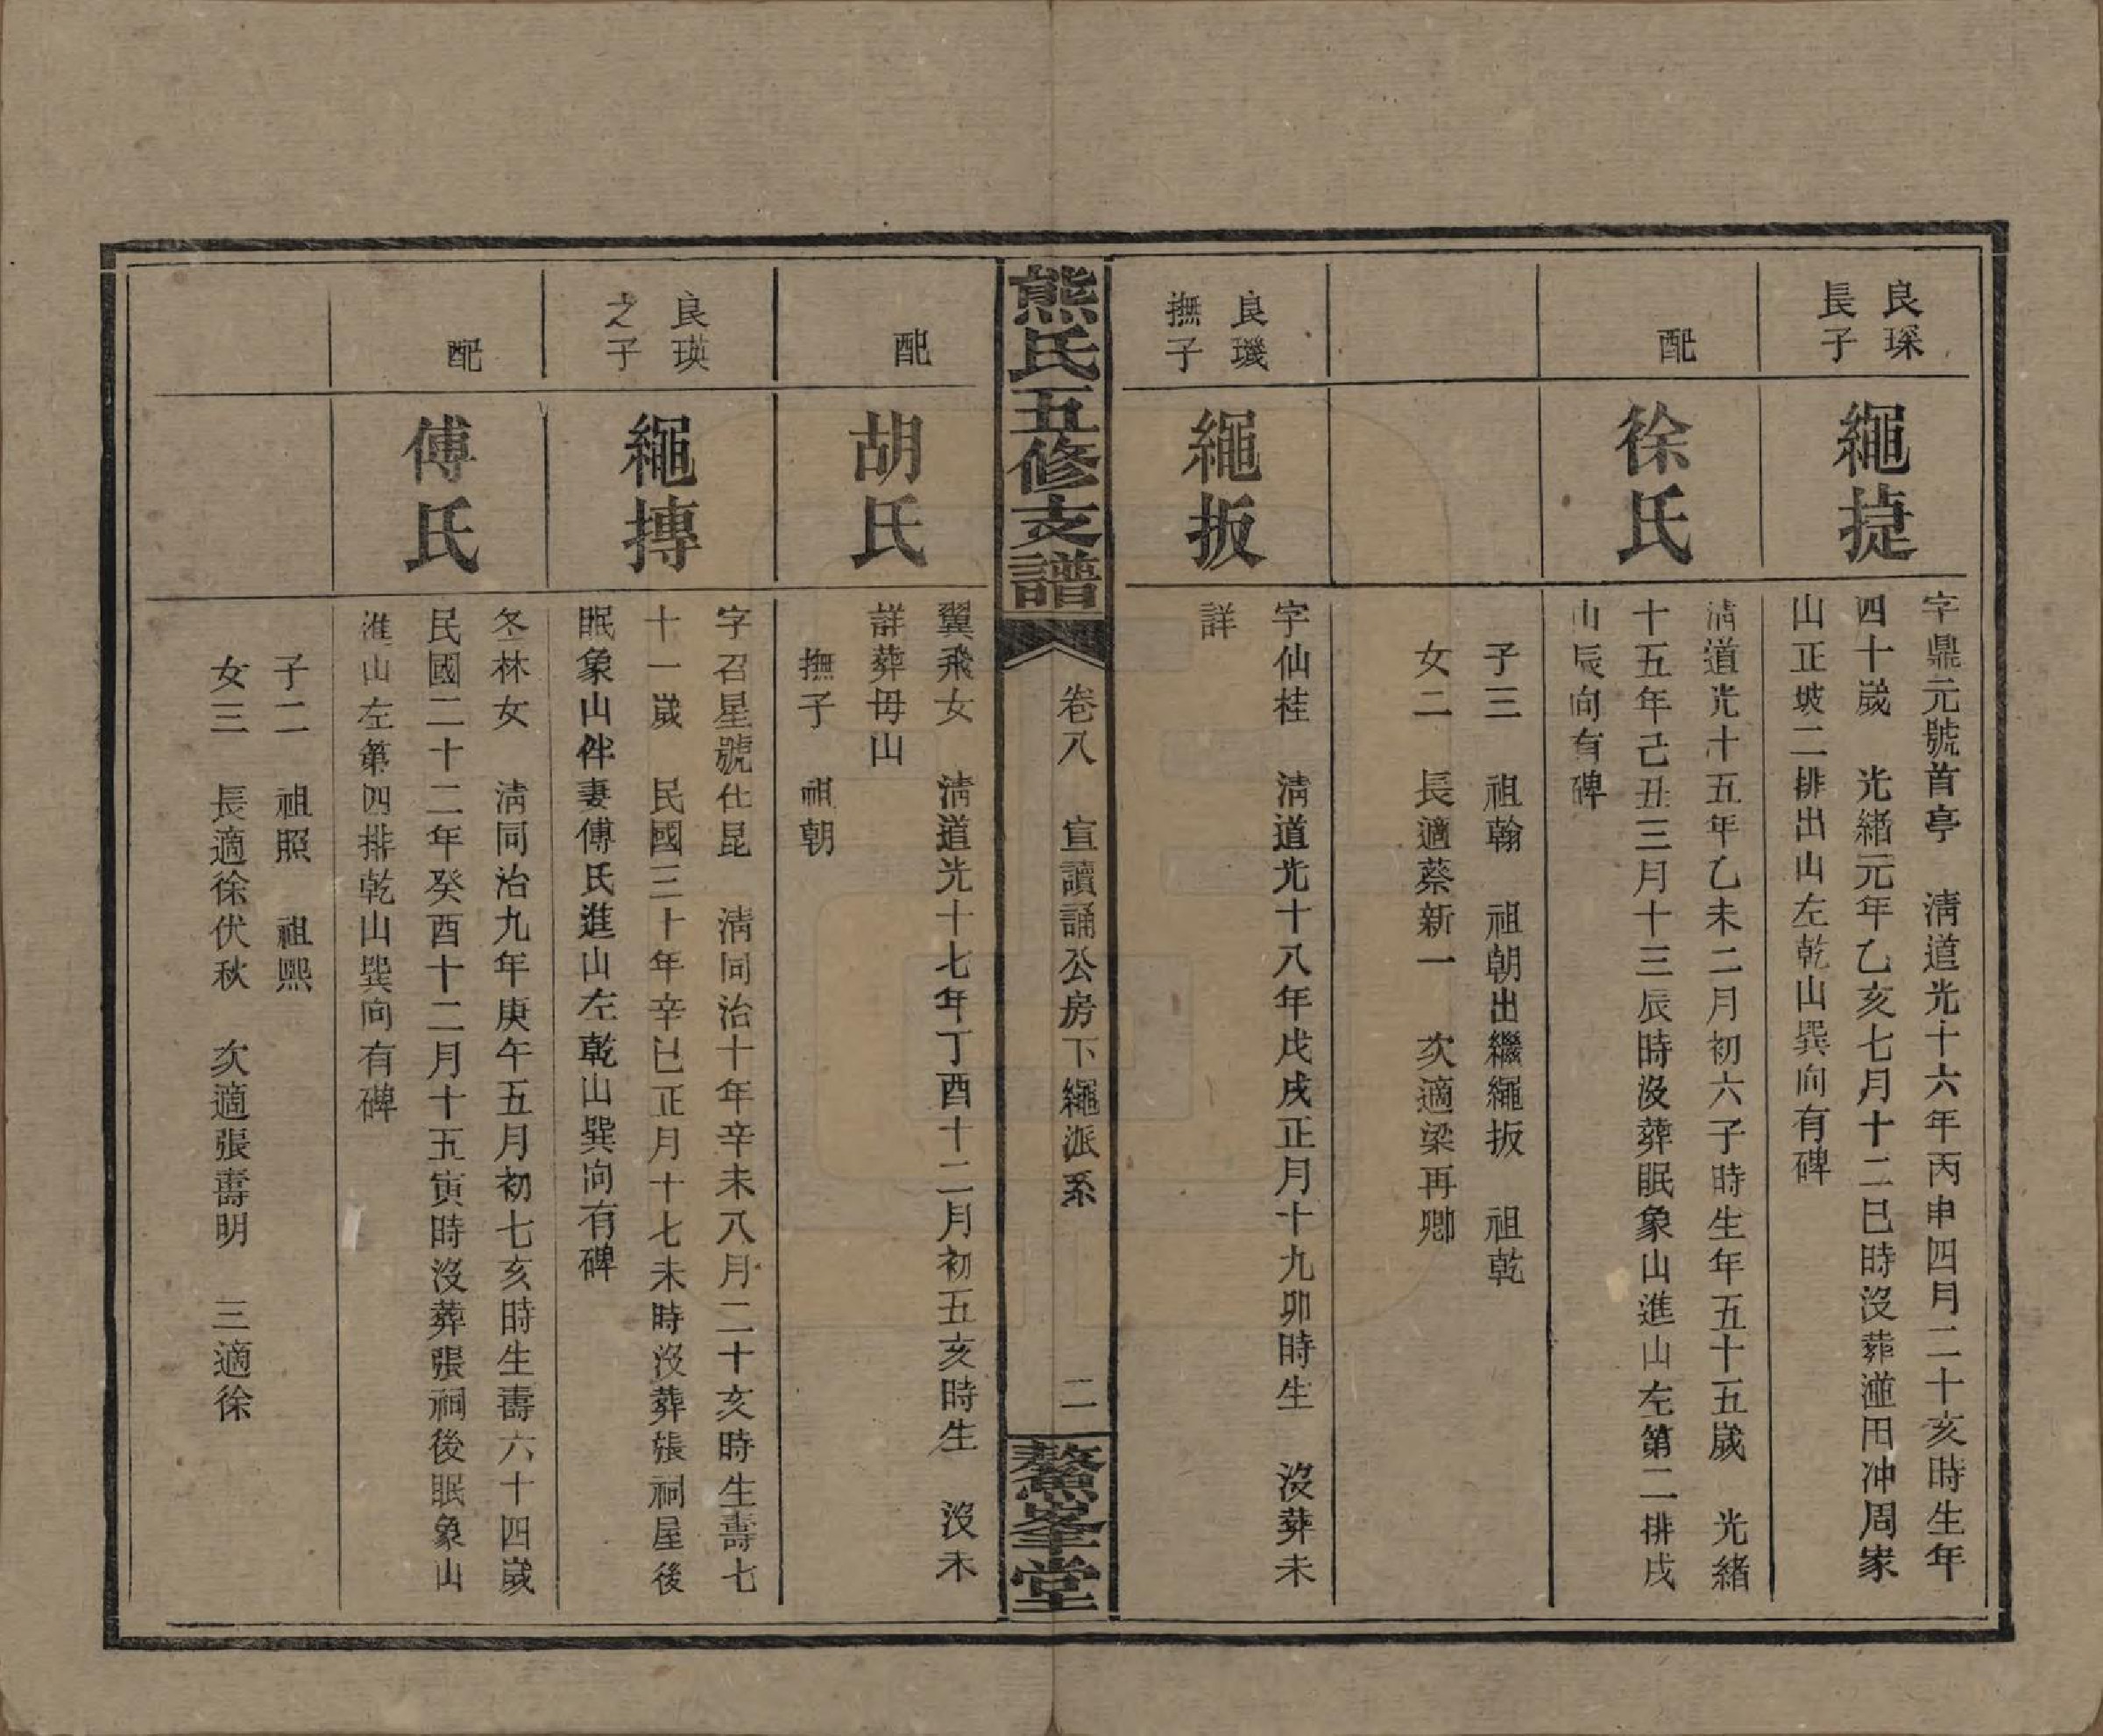 良琛
長子
繩捷
字鼎元號首亭　清道光十六年丙申四月二十亥時生年
四十歲　光緒元年乙亥七月十二巳時沒葬湴田冲周家
山正坡二排出山左乾山巽向有碑
配
徐氏
清道光十五年乙未二月初六子時生年五十五歲　光緒
十五年己丑三月十三辰時沒葬眠象山進山左第二排戌
山辰向有碑
子三　祖翰　祖朝出繼繩扳　祖乾
女二　長適蔡新一　次適梁再卿
良璣
撫子
繩扳
字仙桂　清道光十八年戊戌正月十九卯時生　沒葬未
詳
熊氏五修支譜
卷八　宣讀誦公房下繩派系
二
鰲峯堂
配
胡氏
翼飛女　清道光十七年丁酉十二月初五亥時生　沒未
詳葬毋山
撫子　祖朝
良瑛
之子
繩摶
字召星號仕昆　清同治十年辛未八月二十亥時生壽七
十一歲　民國三十年辛巳正月十七未時沒葬張祠屋後
眠象山伴妻傅氏進山左乾山巽向有碑
配
傅氏
冬林女　清同治九年庚午五月初七亥時生壽六十四歲
民國二十二年癸酉十二月十五寅時沒葬張祠後眠象山
進山左第四排乾山巽向有碑
子二　祖照　祖熙
女三　長適徐伏秋　次適張壽明　三適徐